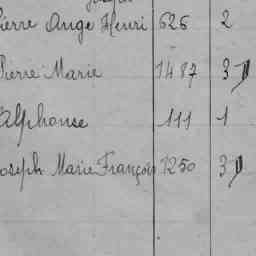 Pierre Ange Henri 626 2
Pierre Marie 1487 3
Alphonse 111 1
Joseph Marie François 1250 3